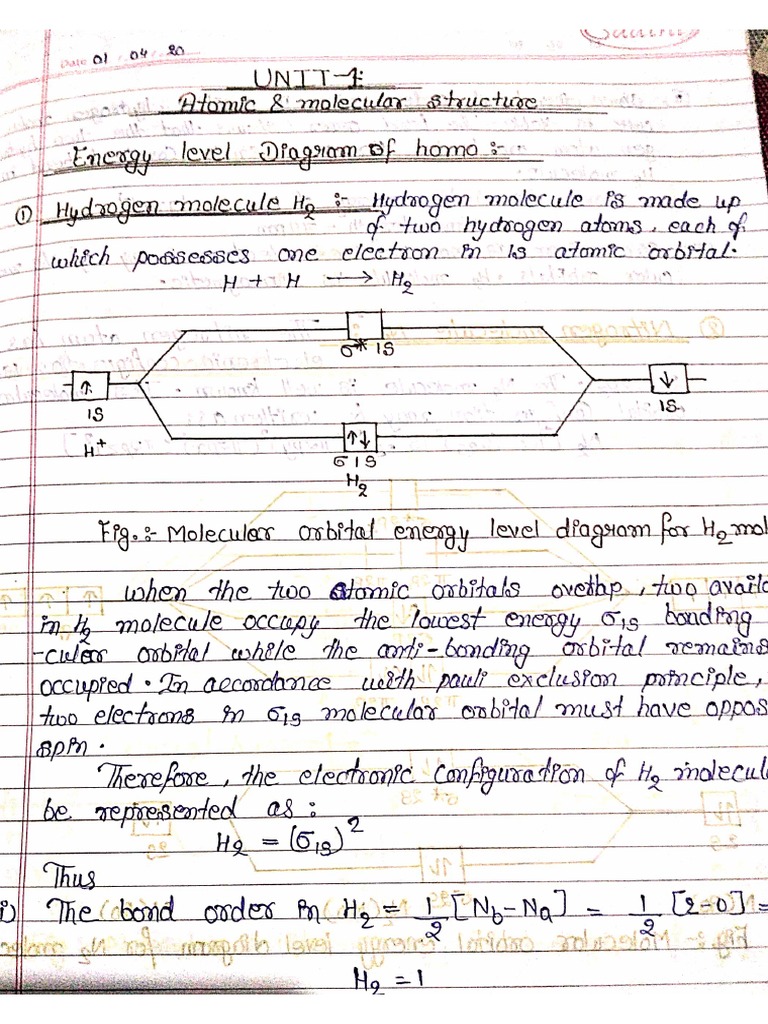 Date 01 . 04 . 20
UNIT-1:
Atomic & molecular structure
Energy level Diagram of homo :-
① Hydrogen molecule H2 :- Hydrogen molecule is made up
of two hydrogen atoms, each of
which possesses one electron in 1s atomic orbital.
H + H → H2
σ* 1S
↑ ↓
1S 1S
↑↓
H+ σ 1S
H2
Fig.:- Molecular orbital energy level diagram for H2 mol
when the two atomic orbitals overlap, two availa
in H2 molecule occupy the lowest energy σ1s bonding
-cular orbital while the anti-bonding orbital remains
occupied. In accordance with pauli exclusion principle,
two electrons in σ1s molecular orbital must have oppos
spin.
Therefore, the electronic configuration of H2 molecul
be represented as:
H2 = (σ1s)2
Thus
i) The bond order in H2 = 1/2 [Nb-Na] = 1/2 [2-0] =
H2 = 1